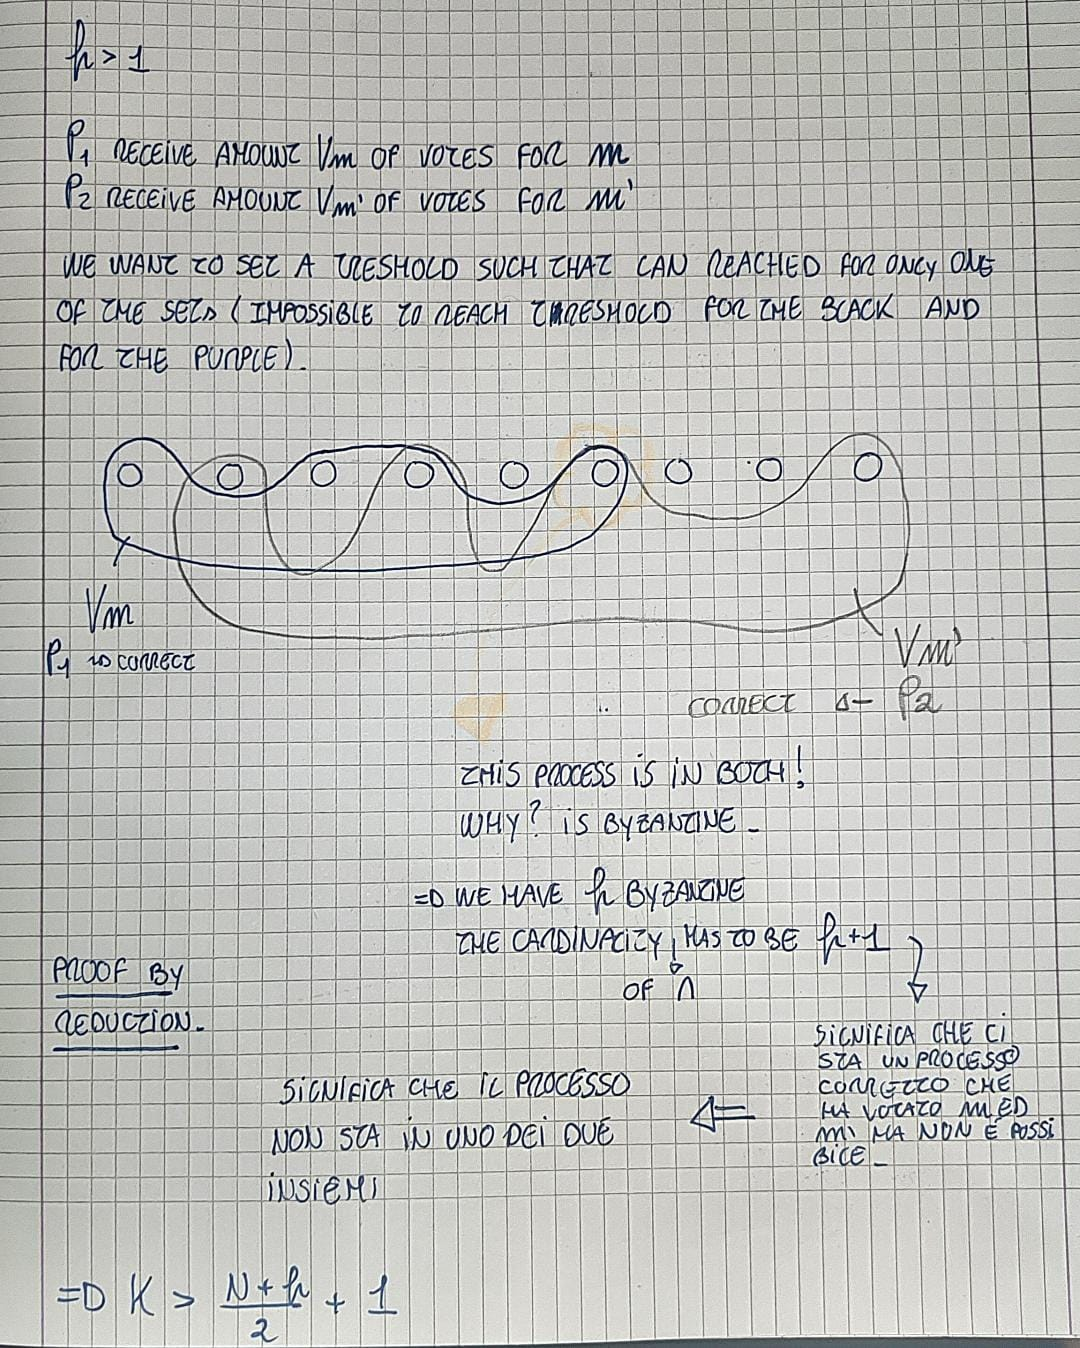 h > 1
P1 RECEIVE AMOUNT Vm OF VOTES FOR m
P2 RECEIVE AMOUNT Vm' OF VOTES FOR m'
WE WANT TO SET A TRESHOLD SUCH THAT CAN REACHED FOR ONLY ONE
OF THE SETS (IMPOSSIBLE TO REACH THRESHOLD FOR THE BLACK AND
FOR THE PURPLE).
Vm
Vm'
P1 is CORRECT
CORRECT ← P2
THIS PROCESS IS IN BOTH!
WHY? IS BYZANTINE -
⇒ WE HAVE h BYZANTINE
THE CARDINALITY HAS TO BE h+1
OF ∩
PROOF BY
REDUCTION -
SIGNIFICA CHE CI
STA UN PROCESSO
CORRETTO CHE
HA VOTATO m ED
m' MA NON È POSSI
BILE -
SIGNIFICA CHE IL PROCESSO ⇐
NON STA IN UNO DEI DUE
INSIEMI
⇒ K > N+h/2 + 1